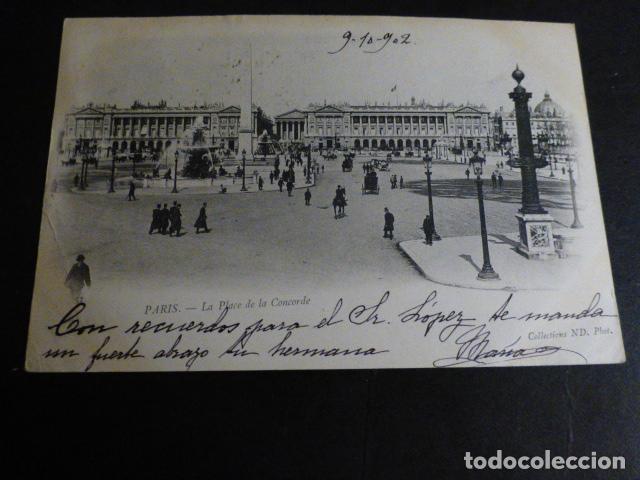 9-10-902
PARIS. — La Place de la Concorde
Con recuerdos para el Sr. López te manda
Collections ND. Phot.
un fuerte abrazo tu hermana María
todocoleccion.net